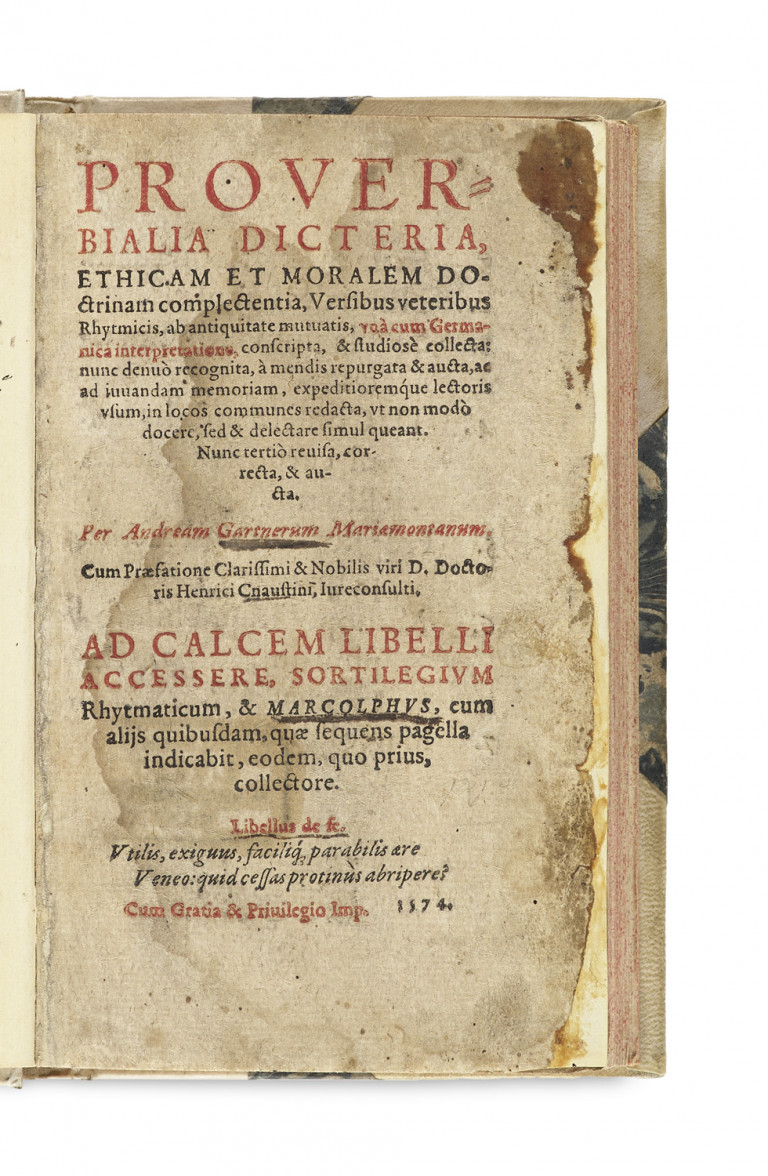 PROVER=
BIALIA DICTERIA,
ETHICAM ET MORALEM DO-
ctrinam complectentia, Versibus veteribus
Rhytmicis, ab antiquitate mutuatis, vnà cum Germa-
nica interpretatione, conscripta, & studiosè collecta:
nunc denuò recognita, à mendis repurgata & aucta, ac
ad iuuandam memoriam, expeditioremq́ue lectoris
vsum, in locos communes redacta, vt non modò
docere, sed & delectare simul queant.
Nunc tertiò reuisa, cor-
recta, & au-
cta.
Per Andream Gartnerum Mariæmontanum.
Cum Præfatione Clarissimi & Nobilis viri D. Docto-
ris Henrici Cnaustini, Iureconsulti.
AD CALCEM LIBELLI
ACCESSERE, SORTILEGIVM
Rhytmaticum, & MARCOLPHVS, cum
alijs quibusdam, quæ sequens pagella
indicabit, eodem, quo prius,
collectore.
Libellus de se.
Vtilis, exiguus, faciliq́, parabilis ære
Veneo: quid cessas protinùs abripere?
Cum Gratia & Priuilegio Imp. 1574.